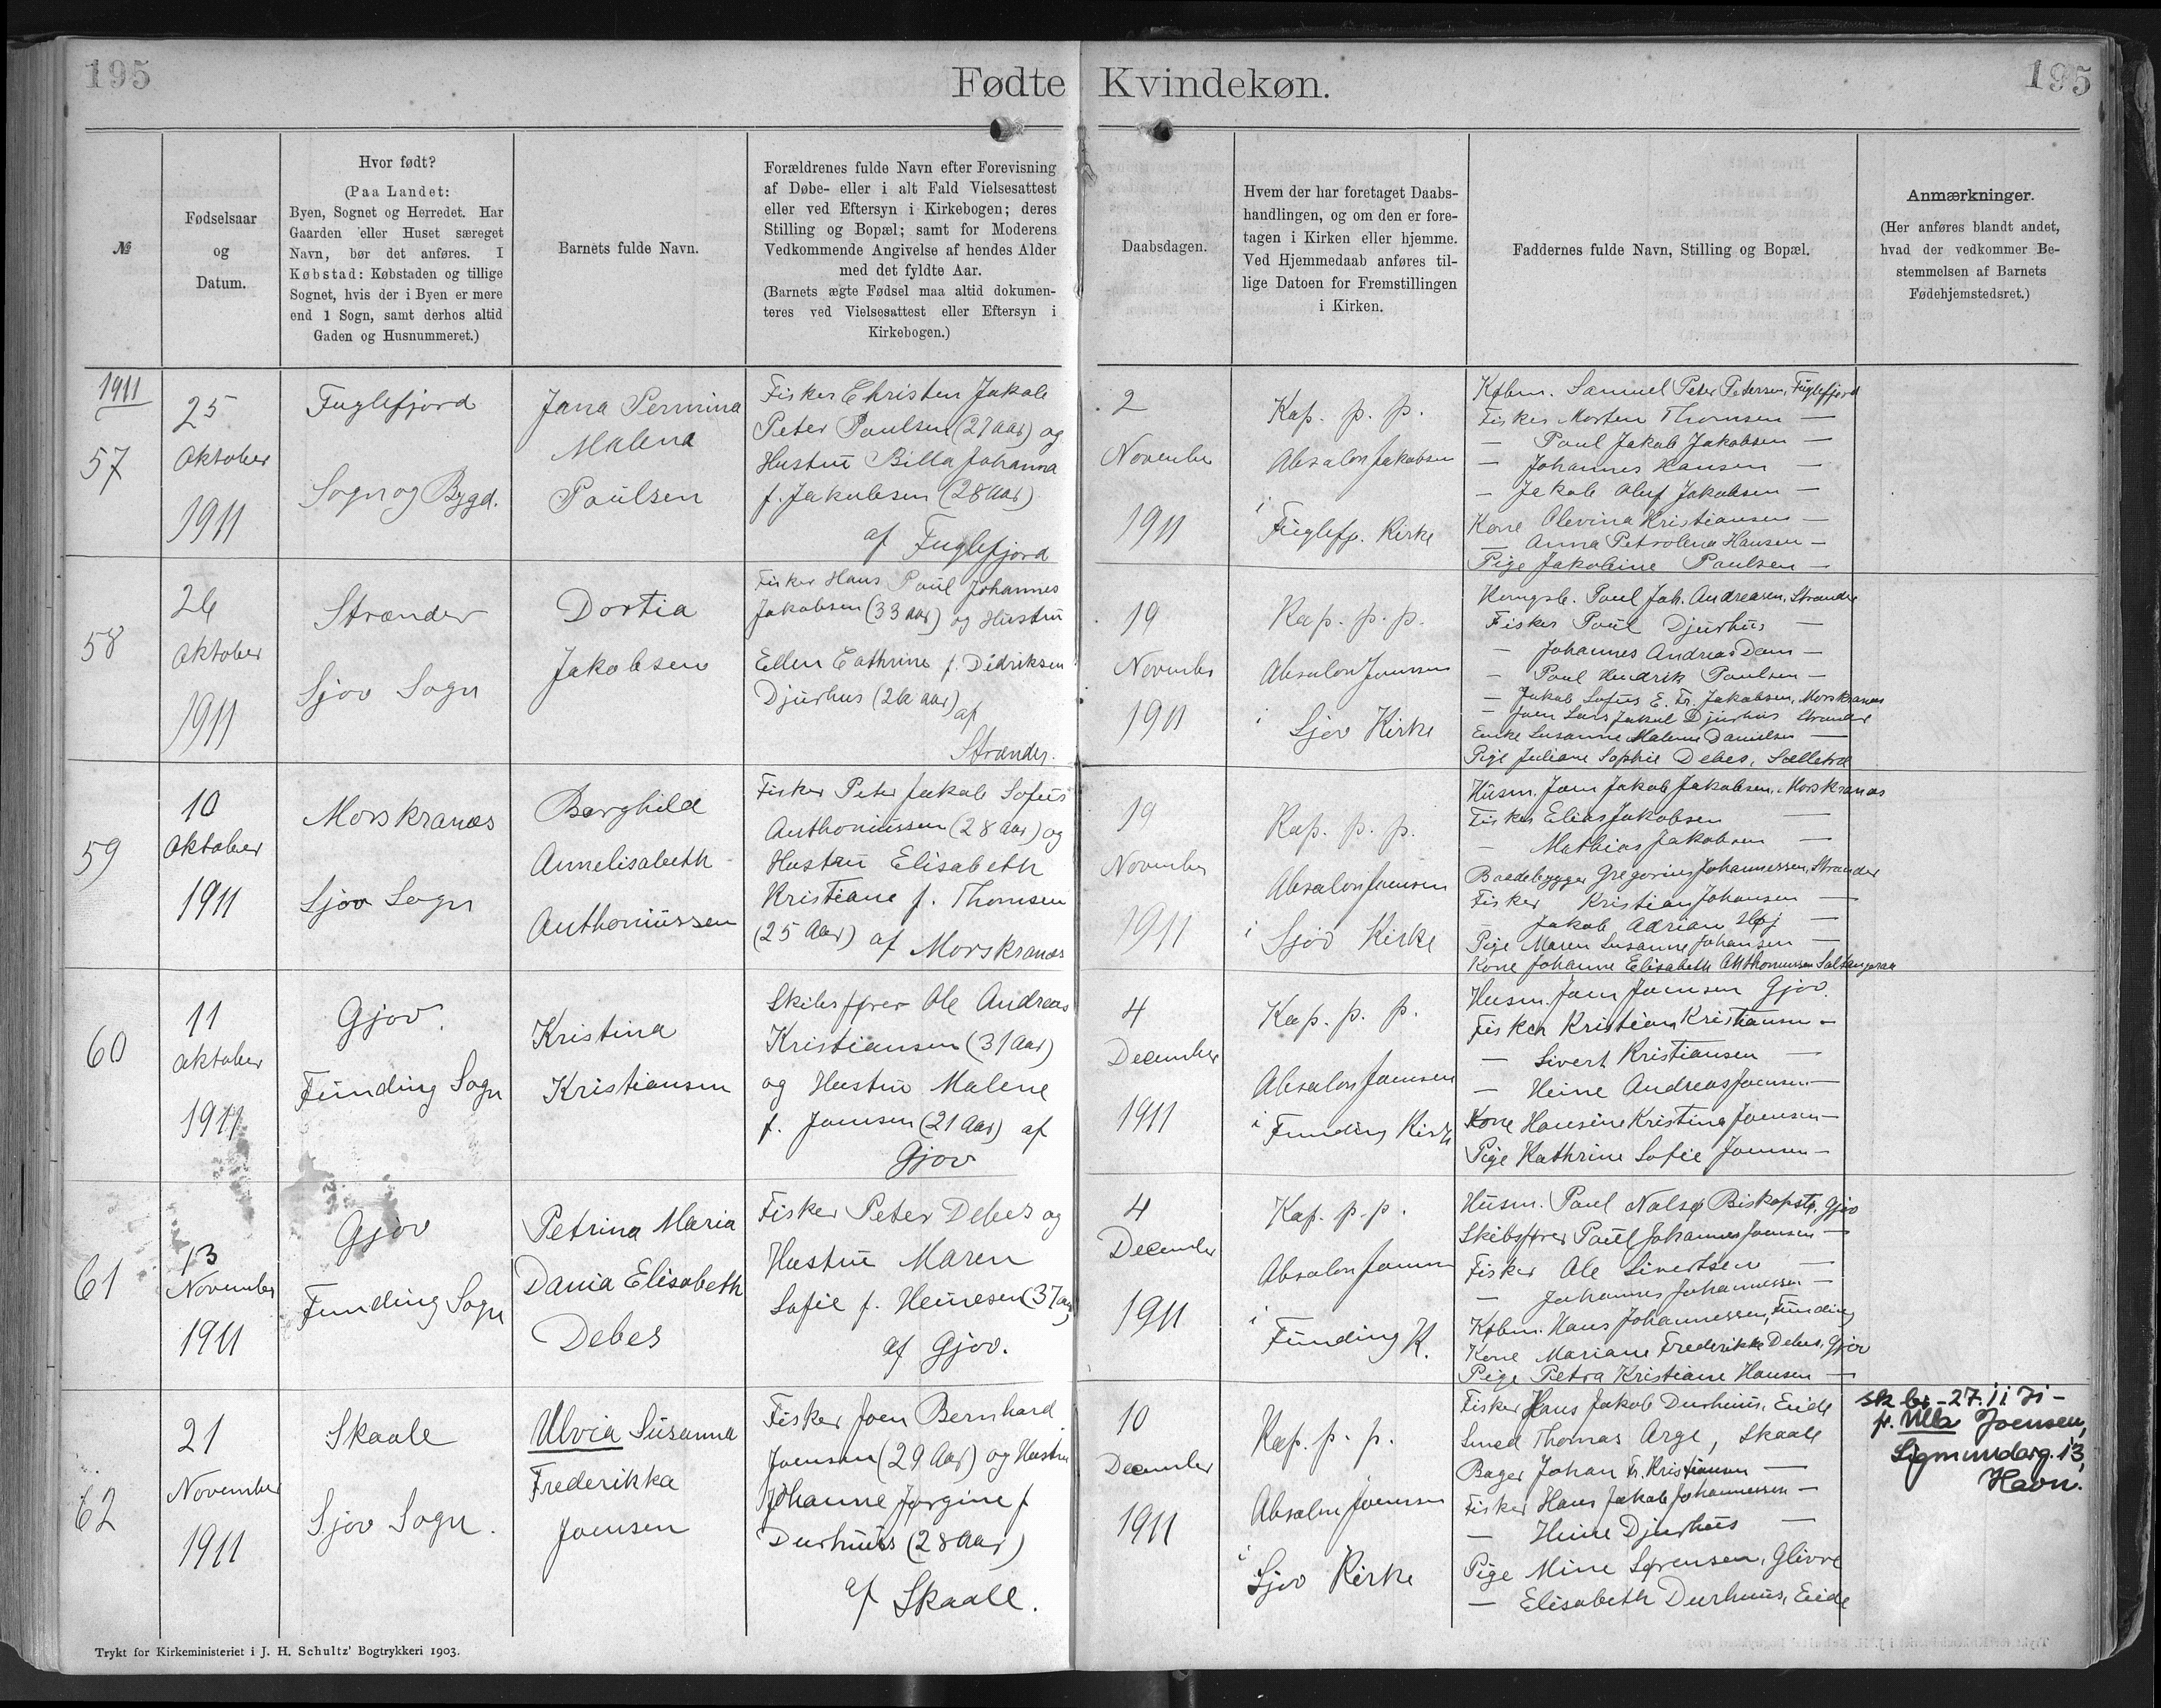 195
Fødte Kvindekøn.
195
№
Fødselsaar
og
Datum.
Hvor født?
(Paa Landet:
Byen, Sognet og Herredet. Har
Gaarden eller Huset særeget
Navn, bør det anføres. I
Købstad: Købstaden og tillige
Sognet, hvis der i Byen er mere
end 1 Sogn, samt derhos altid
Gaden og Husnummeret.)
Barnets fulde Navn.
Forældrenes fulde Navn efter Forevisning
af Døbe- eller i alt Fald Vielsesattest
eller ved Eftersyn i Kirkebogen; deres
Stilling og Bopæl; samt for Moderens
Vedkommende Angivelse af hendes Alder
med det fyldte Aar.
(Barnets ægte Fødsel maa altid dokumen-
teres ved Vielsesattest eller Eftersyn i
Kirkebogen.)
Daabsdagen.
Hvem der har foretaget Daabs-
handlingen, og om den er fore-
tagen i Kirken eller hjemme.
Ved Hjemmedaab anføres til-
lige Datoen for Fremstillingen
i Kirken.
Faddernes fulde Navn, Stilling og Bopæl.
Anmærkninger.
(Her anføres blandt andet,
hvad der vedkommer Be-
stemmelsen af Barnets
Fødehjemstedsret.)
1911
57
25
Oktober
1911
Fuglefjord
Sogn og Bygd.
Jana Permina
Malena
Poulsen
Fisker Christen Jakob
Peter Poulsen (27 Aar) og
Hustru Billa Johanna
f. Jakobsen (28 Aar)
af Fuglefjord
2
November
1911
Kap. p. p.
Absalon Jakobsen
i
Fuglefj. Kirke
Købm. Samuel Peter Petersen, Fuglefjord
Fisker Morten Thomsen —
— Poul Jakob Jakobsen —
— Johannes Hansen —
— Jakob Oluf Jakobsen —
Kone Olevina Kristiansen —
— Anna Petrolena Hansen —
Pige Jakobine Poulsen —
58
26
Oktober
1911
Strænder
Sjov Sogn
Dortia
Jakobsen
Fisker Hans Poul Johannes
Jakobsen (33 Aar) og Hustru
Ellen Cathrine f. Didriksen
Djurhus (26 aar)
af
Strænder.
19
November
1911
Kap. p. p.
Absalon Joensen
i
Sjov Kirke
Kongsb. Poul Joh. Andreasen, Strænder
Fisker Poul Djurhus —
— Johannes Andreas Dam —
— Poul Hendrik Poulsen —
— Jakob Sofus E. Fr. Jakobsen, Morskranæs
— Joen Lars Jakob Djurhus Strænder
Enke Susanne Malene Danielsen —
Pige Juliane Sophie Debes, Selletræ
59
10
Oktober
1911
Morskranæs
Sjov Sogn
Borghild
Annelisabeth
Anthoniussen
Fisker Peter Jakob Sofus
Anthoniussen (28 Aar) og
Hustru Elisabeth
Kristiane f. Thomsen
(25 Aar) af Morskranæs
19
November
1911
Kap. p. p.
Absalon Joensen
i
Sjov Kirke
Husm. Joen Jakob Jakobsen, Morskranæs
Fisker Elias Jakobsen —
— Mathias Jakobsen —
Baadebygger Gregorius Johannessen, Strænder
Fisker Kristian Johansen —
Jakob Adrian Høj —
Pige Maren Susanne Johansen —
Kone Johanne Elisabeth Anthoniussen Saltangaraa
60
11
Oktober
1911
Gjov.
Funding Sogn
Kristina
Kristiansen
Skibsfører Ole Andreas
Kristiansen (31 Aar)
og Hustru Malene
f. Joensen (21 Aar) af
Gjov
4
December
1911
Kap. p. p.
Absalon Joensen
i
Funding Kirke
Husm. Joen Joensen Gjov.
Fisker Kristian Kristiansen —
— Sivert Kristiansen —
— Heine Andreas Joensen —
Kone Hansine Kristina Joensen —
Pige Kathrine Sofie Joensen —
61
13
November
1911
Gjov
Funding Sogn
Petrina Maria
Dania Elisabeth
Debes
Fisker Peter Debes og
Hustru Maren
Sofie f. Heinesen (37 aar)
af Gjov.
4
December
1911
Kap. p. p.
Absalon Joensen
i
Funding K.
Husm. Poul Nolsø Biskopstø, Gjov
Skibsfører Poul Johannes Joensen —
Fisker Ole Sivertsen —
— Johannes Johannessen —
Købm. Hans Johannessen, Funding
Kone Mariane Frederikke Debes, Gjov
Pige Petra Kristiane Hansen —
62
21
November
1911
Skaale
Sjov Sogn.
Ulvia Susanna
Frederikka
Joensen
Fisker Joen Bernhard
Joensen (29 Aar) og Hustru
Johanne Jørgine f
Durhuus (28 Aar)
af Skaale.
10
December
1911
Kap. p. p.
Absalon Joensen
i
Sjov Kirke
Fisker Hans Jakob Durhuus, Eide
Smed Thomas Arge, Skaale
Bager Johan Fr. Kristiansen —
Fisker Hans Jakob Johannessen —
— Heine Djurhus —
Pige Mine Sørensen, Glivre
— Elisabeth Durhuus, Eide
27.11 71 —
f. Ulla Joensen,
Sigmundarg. 13,
Havn.
Trykt for Kirkeministeriet i J. H. Schultz' Bogtrykkeri 1903.